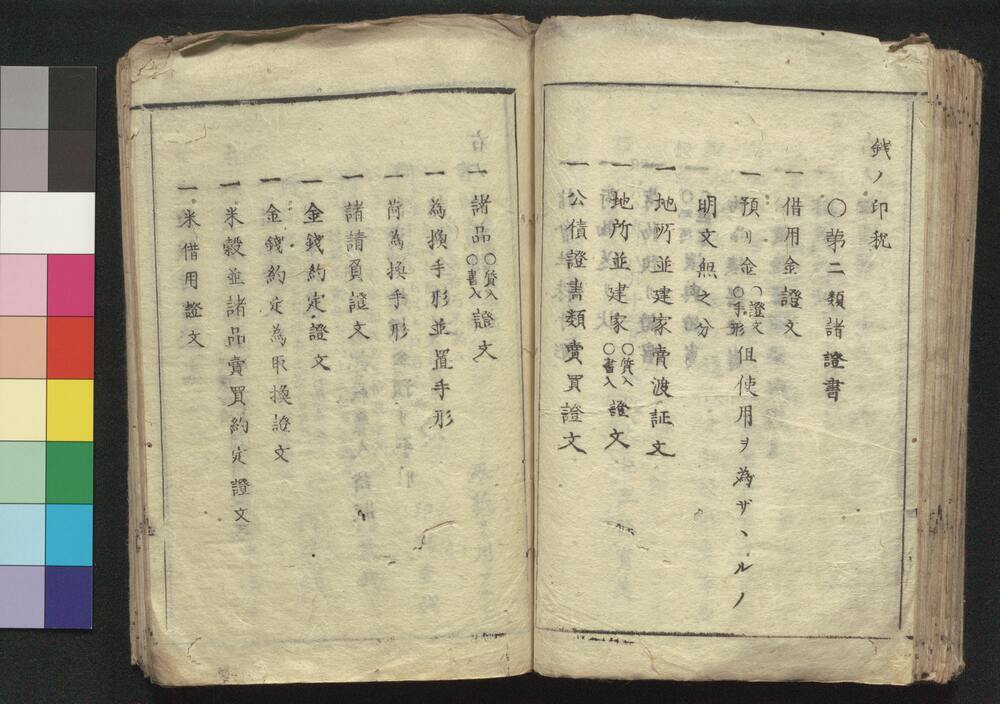 銭ノ印税
〇第二類諸證書
一 借用金證文
一 預リ金〇證文〇手形但使用ヲ為ザヽルノ
明文無之分
一 地所並建家賣渡証文
一 地所並建家〇質入〇書入證文
一 公債證書類賣買證文
一 諸品〇質入〇書入證文
一 為換手形並置手形
一 荷為換手形
一 諸請負證文
一 金錢約定證文
一 金錢約定為取換證文
一 米穀並諸品賣買約定證文
一 米借用證文